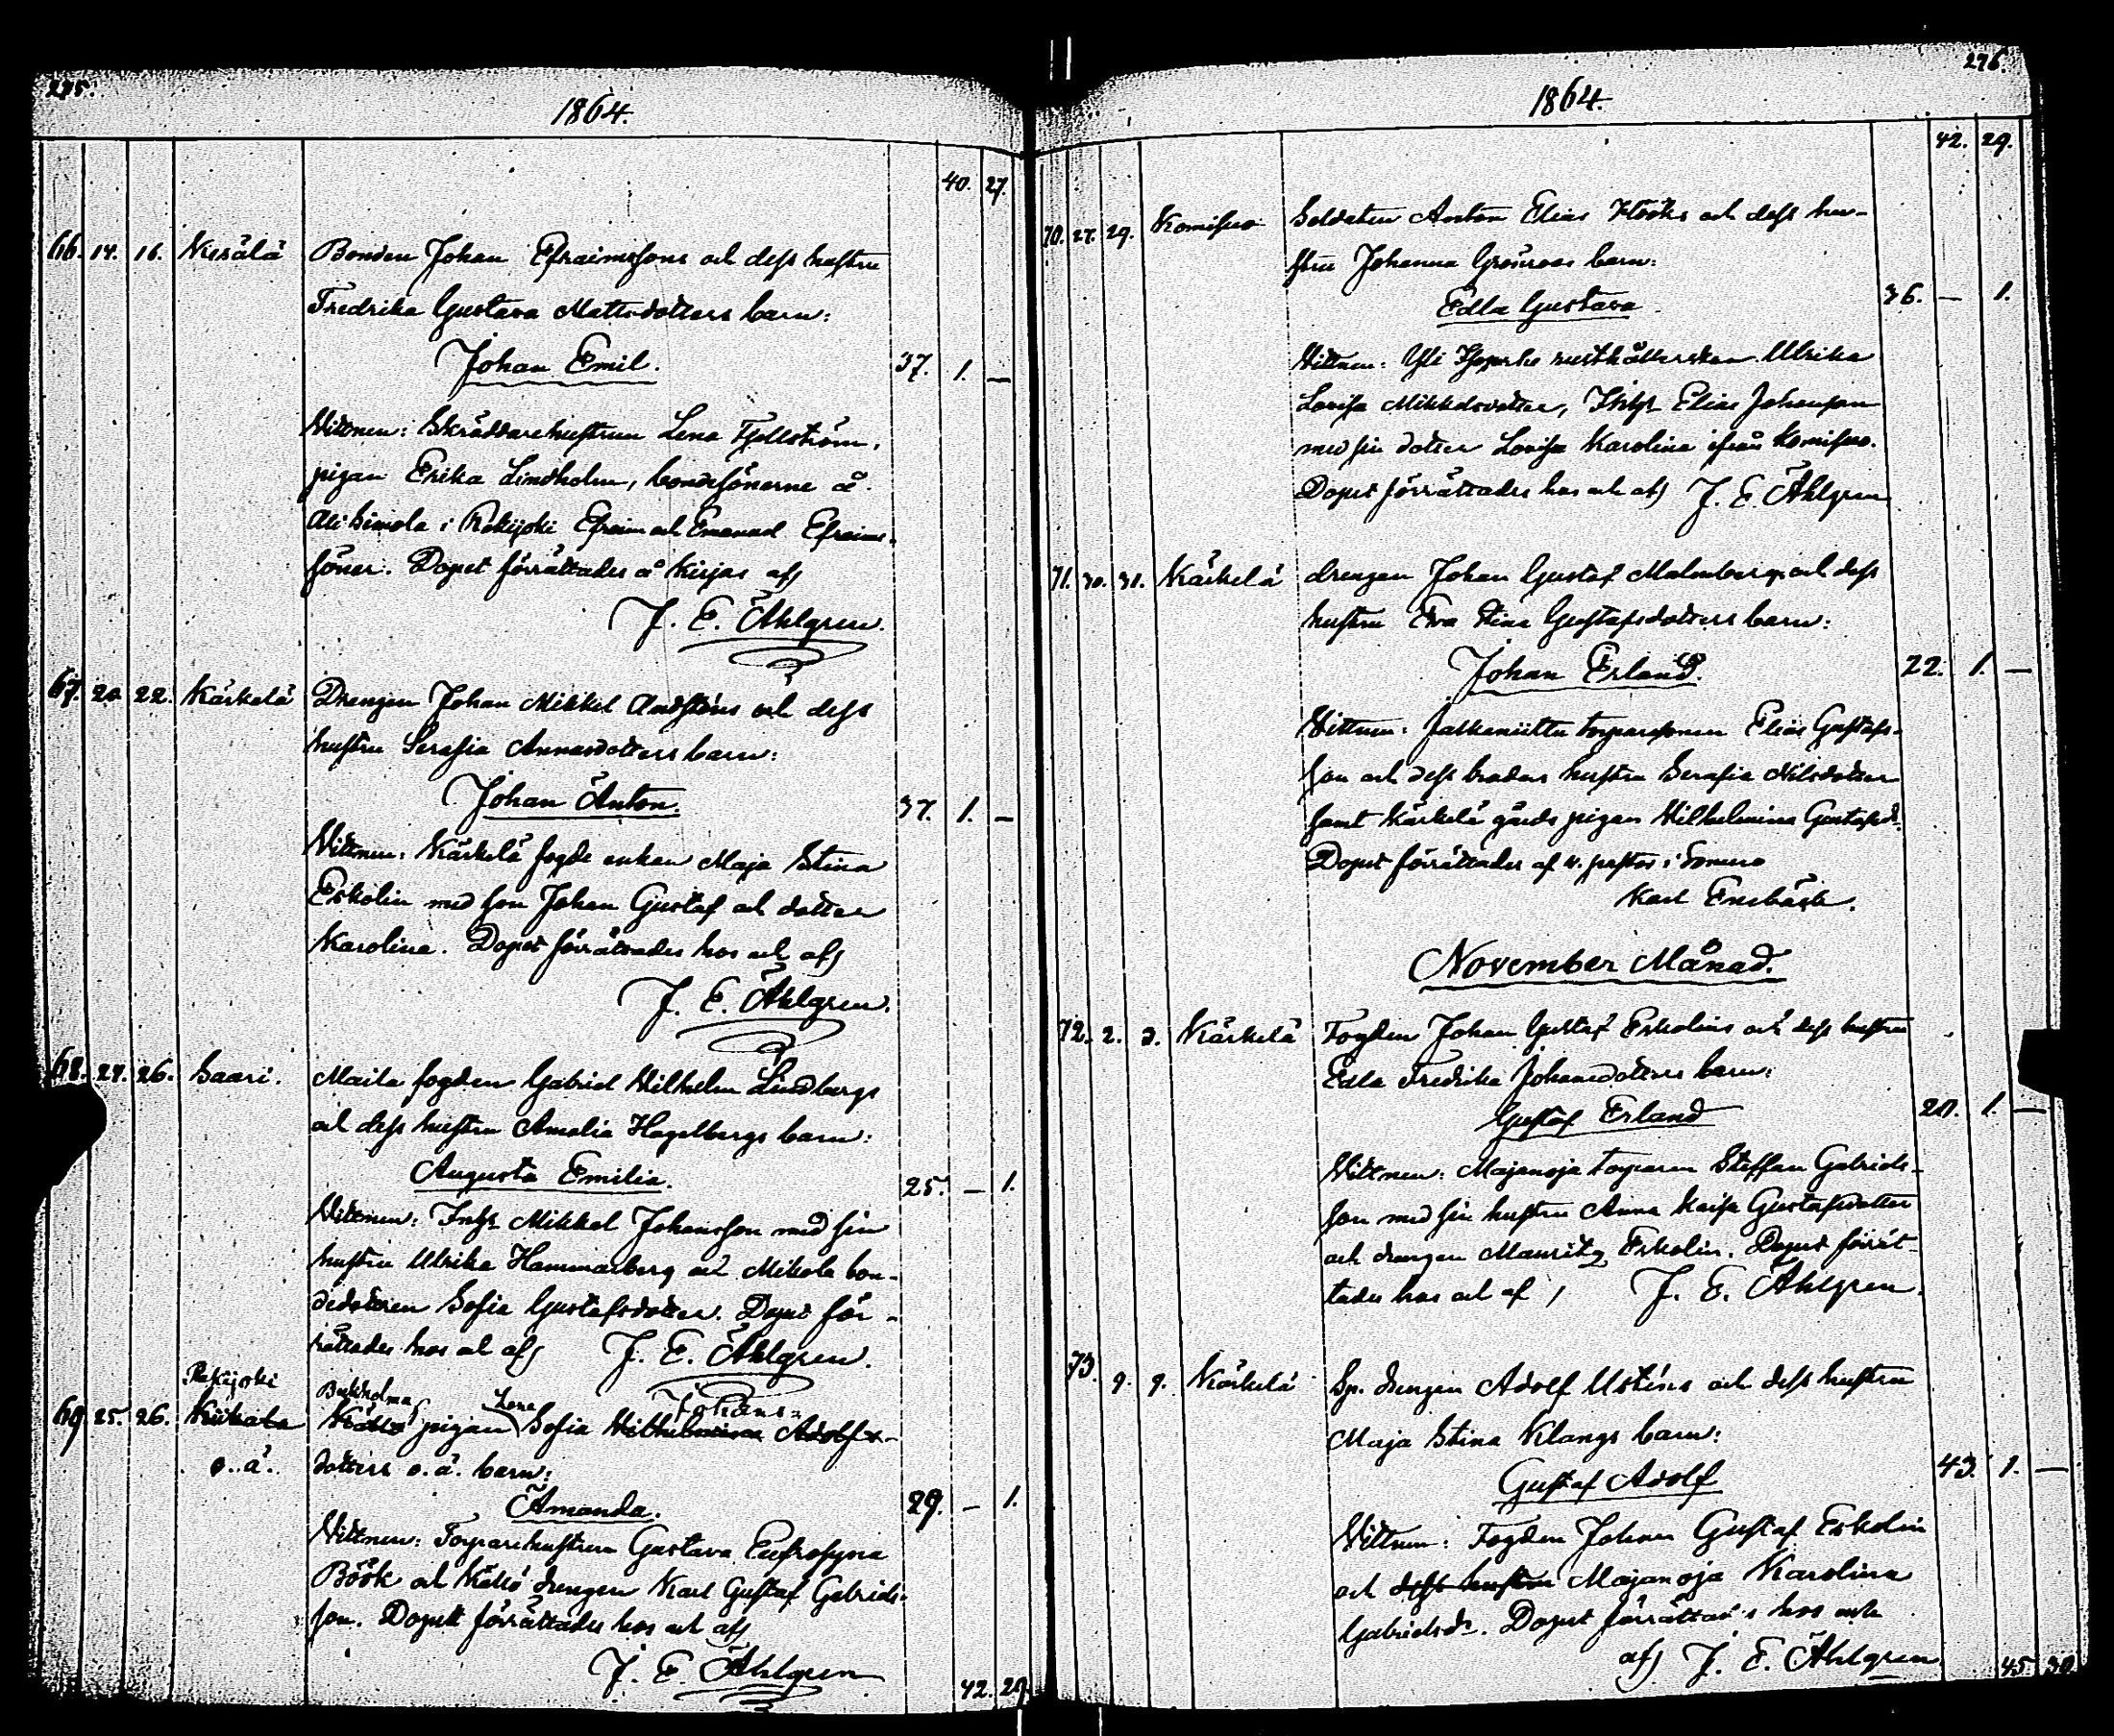 275.
1864.
40. 27.
66. 14. 16. Kesälä Bonden Johan Efraimssons och dess hustru
Fredrika Gustava Mattsdotters barn:
Johan Emil. 37. 1. —
Vittnen: Skräddarehustrun Lena Fjellström,
pigan Erika Lindholm, bondesönerne å
Ali Simola i Rekijoki Efraim och Emanuel Efraims-
söner. Dopet förrättades å Kirjas af
J. E. Åhlgren.
67. 20. 22. Kärkelä Drengen Johan Mikkel och dess
hustru Serafia Annasdotters barn:
Johan Anton. 37. 1. —
Vittnen: Kärkelä fogde enkan Maja Stina
Eskolin med son Johan Gustaf och dotter
Karolina. Dopet förrättades hos och af
J. E. Åhlgren.
68. 24. 26. Saari. Maila fogden Gabriel Wilhelm Lindbergs
och dess hustru Amalia Hagelbergs barn:
Augusta Emilia. 25. — 1.
Vittnen: Inhs Mikkel Johansson med sin
hustru Ulrika Hammarberg och Mikola bon-
dedottren Sofia Gustafsdotter. Dopet för-
rättades hos och af J. E. Åhlgren.
Rekijoki
69 25. 26. Kiikala pigan Lena Sofia Wilhelmina Adolfs- Johans-
o. ä. dotters o. ä. barn:
Amanda. 29. — 1.
Vittnen: Torparehustrun Gustava Eufrosyna
Böök och drengen Karl Gustaf Gabriels-
son. Dopet förrättades hos och af
J. E. Åhlgren
42. 29.
276.
1864.
42. 29.
70. 27. 29. Komisuo Soldaten Anton Elias och dess hu-
stru Johanna Grönroos barn:
Edla Gustava. 36. — 1.
Vittnen: Yli rusthållerskan Ulrika
Lovisa Mikkelsdotter, Inhs Elias Johansson
med sin dotter Lovisa Karolina ifrån Komisuo.
Dopet förrättades hos och af J. E. Åhlgren
71. 30. 31. Kärkelä drengen Johan Gustaf Malmbergs och dess
hustru Eva Stina Gustafsdotters barn:
Johan Erland. 22. 1. —
Vittnen: torparesonen Elias Gustafs-
son och dess broders hustru Serafia Nilsdotter
samt Kärkelä gårds pigan Vilhelmina Gustafsd:r
Dopet förrättades af v. pastor i Somero
Karl Enebäck.
November Månad.
72. 2. 2. Kärkelä Fogden Johan Gustaf Eskolins och dess hustru
Edla Fredrika Johansdotters barn:
Gustaf Erland 20. 1. —
Vittnen: Majanoja torparen Steffan Gabriels-
son med sin hustru Anna Kaisa Gustafsdotter
och drengen Mauritz Eskolin. Dopet förrät-
tades hos och af J. E. Åhlgren.
73. 9. 9. Kärkelä Sp. drengen Adolf Usténs och dess hustru
Maja Stina Klangs barn:
Gustaf Adolf 43. 1. —
Vittnen: Fogden Johan Gustaf Eskolin
och dess hustru Majanoja Karolina
Gabrielsd:r. Dopet förrättades hos och
af J. E. Åhlgren.
45 30